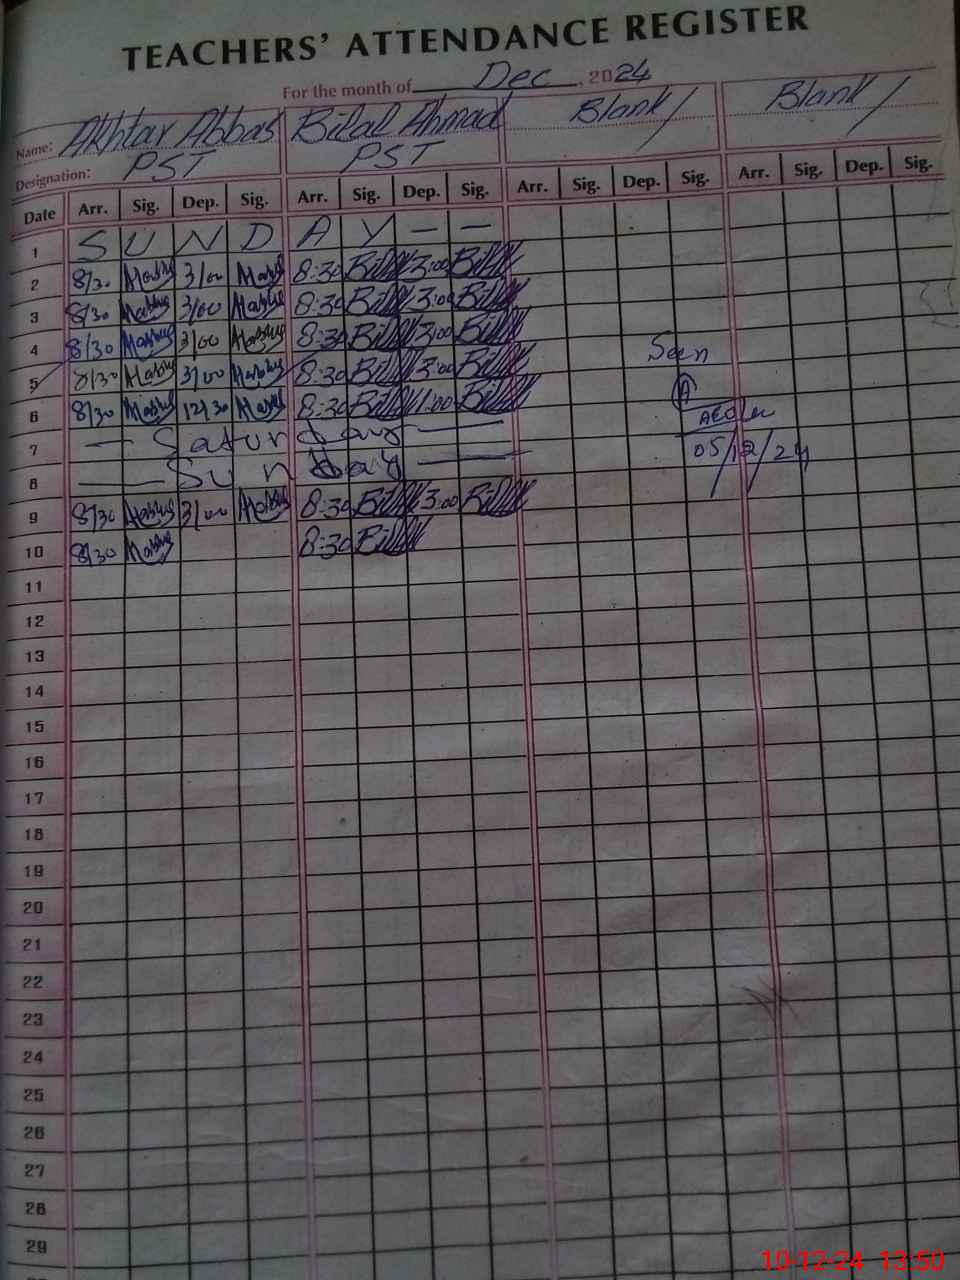 TEACHERS' ATTENDANCE REGISTER
For the month of Dec, 2024
Name: Akhtar Abbas Bilal Ahmad Blank/ Blank/
Designation: PST PST
Date Arr. Sig. Dep. Sig. Arr. Sig. Dep. Sig. Arr. Sig. Dep. Sig. Arr. Sig. Dep. Sig.
1 S U N D A Y — —
2 8/30 3/00 8:30 3:00
3 8/30 3/00 8:30 3:00
4 8/30 3/00 8:30 3:00 Seen
5 8/30 3/00 8:30 3:00
6 8/30 12/30 8:30 1:00
7 — Saturday —
05/12/24
8 — Sunday —
9 8/30 3/00 8:30 3:00
10 8/30 8:30
11
12
13
14
15
16
17
18
19
20
21
22
23
24
25
26
27
28
29
10-12-24 13:50